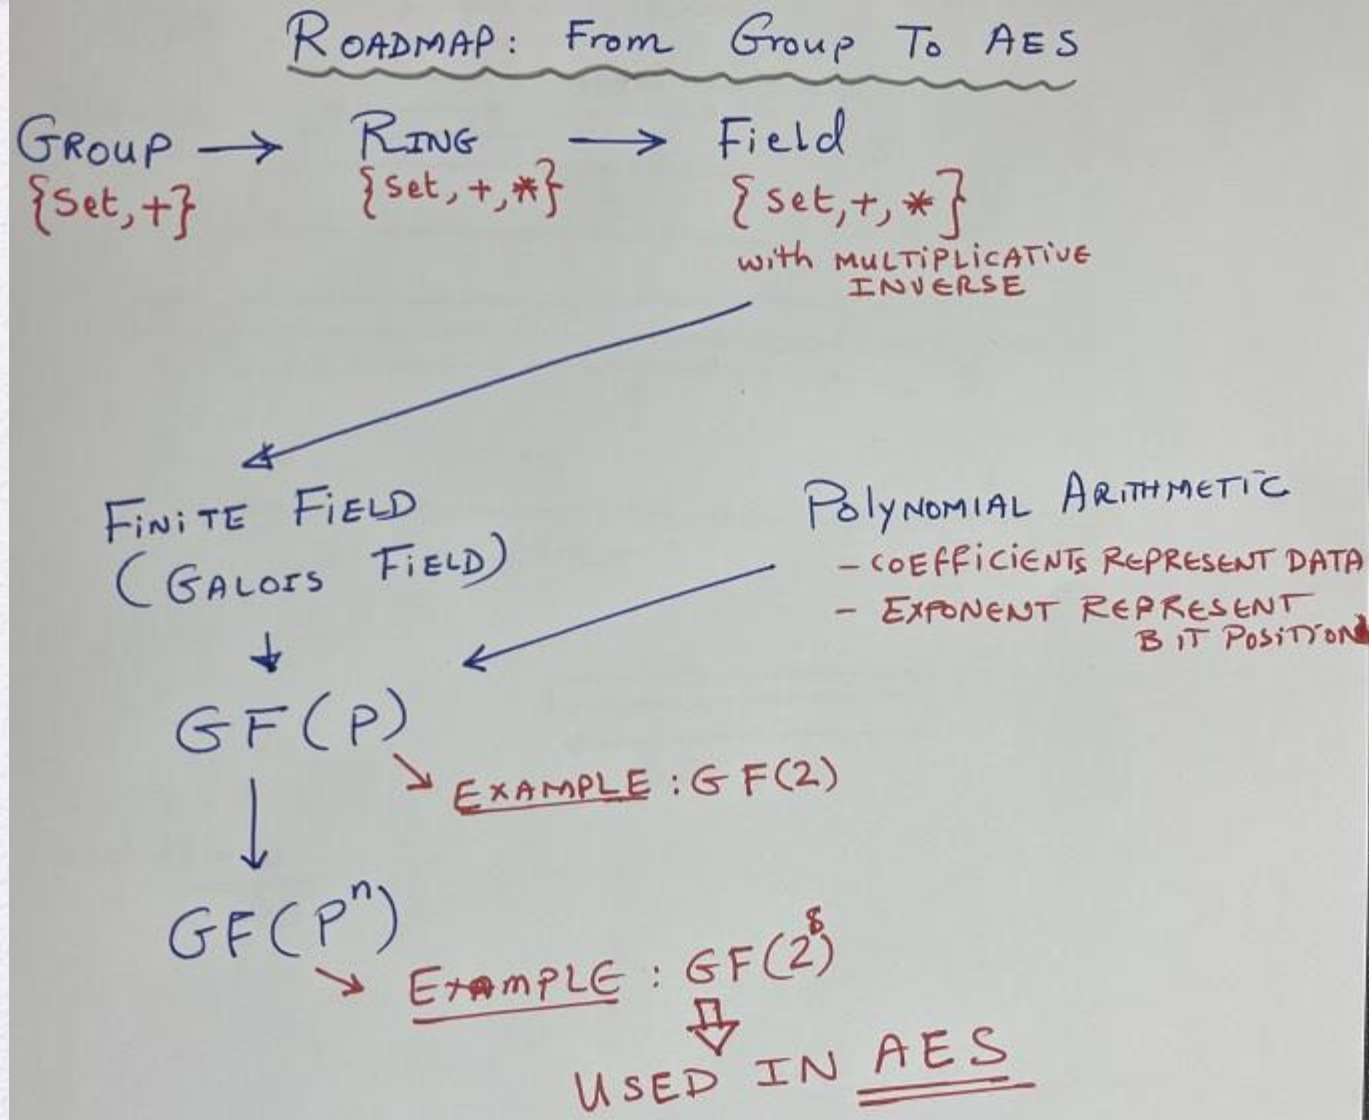 ROADMAP: From Group To AES
GROUP → RING → Field
{Set,+} {Set,+,*} {Set,+,*}
with MULTIPLICATIVE
INVERSE
FINITE FIELD
(GALOIS FIELD)
POLYNOMIAL ARITHMETIC
- COEFFICIENTS REPRESENT DATA
- EXPONENT REPRESENT
BIT POSITION
GF(P)
EXAMPLE: GF(2)
GF(Pⁿ)
EXAMPLE: GF(2⁸)
USED IN AES